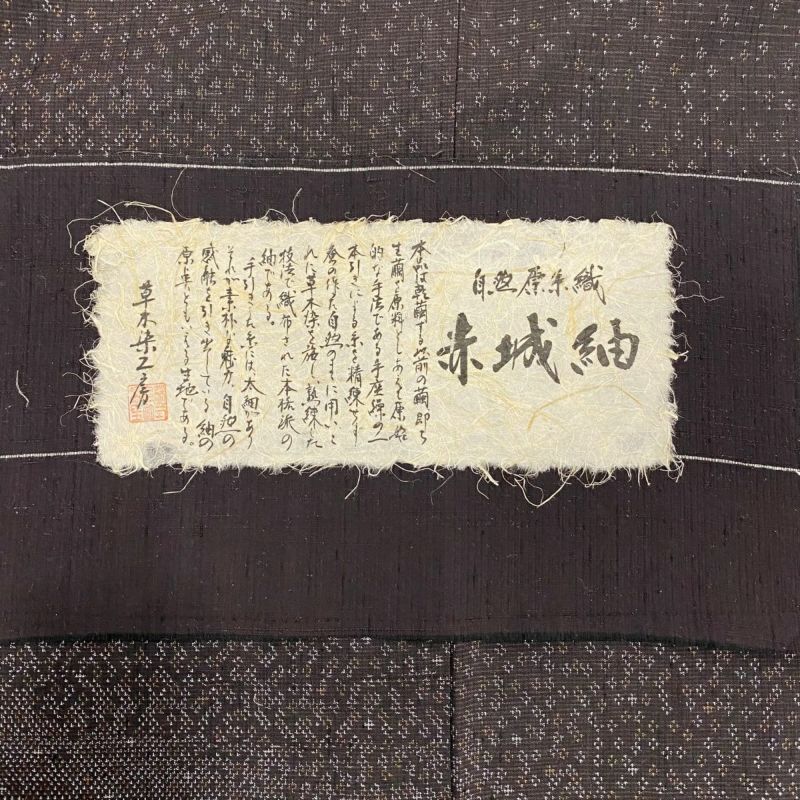 自然原糸織
赤城紬
本品は乾繭する以前の繭即ち
生繭を原料としあくまで原始
的な手法である手座繰の一
本引きによる糸を精練せず
蚕の作った自然のままに用いこ
れに草木染を施し、熟練した
技法で織布された本格派の
紬である。
手引きした糸には、太細があり
それが素朴な魅力、自然の
感触を引き出している紬の
原点ともいえる生地である。
草木染工房